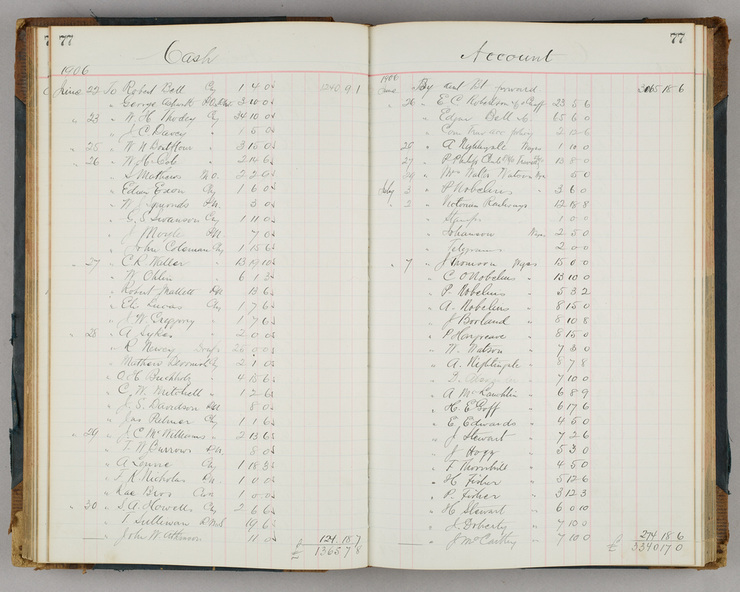 77
Cash
1906
June 22 To Robert Ball Cq 1 4 0 1240 9 1
" George 3 10 0
" 23 " W. H. Thodey Cq 34 10 0
" J. C. Darcy " 1 5 0
" 25 " W N 3 15 0
" 26 " W. H. Cob " 2 14 6
" S Matheson M.O. 2 2 0
" Edwin Exon Cq 1 6 0
" W. J. P.N. 3 0
" G. S. Swanson Cq 1 11 0
" J P.N. 7 0
" John Coleman Cq 1 15 6
" 27 " C. R. Miller 13 19 10
" W. 6 1 3
" Robert Mallett P.N. 13 6
" Ch. Lucas Cq 1 7 6
" J. W. Greggory " 1 7 6
" 28 " A Sykes " 2 0 0
" R Nancy 25 0 0
" Mathew Cq 2 1 0
" O. H. Buchholz " 4 15 6
" C. W. Mitchell " 1 2 6
" J. S. Davidson P.N. 8 0
" Jas Palmer Cq 1 1 6
" 29 " J. C. McWilliams " 2 13 6
" T. W. Burrows P.N. 8 0
" A Cq 1 18 3
" F. R. Nicholas P.N. 1 0 0
" Rae Bros 1 0 0
" 30 " S. A. Howells Cq 2 6 6
" T Sullivan 19 6
" John W. Atkinson 11 0 124 18 7
£ 1365 7 8
77
Account
1906
June By forward 3065 18 6
" 26 " E C 23 5 6
" Edgar Bell 65 6 0
" 2 12 6
" 25 " A Nightingale Wages 1 10 0
" 27 " 15 8 0
" 29 " Mrs Walter Watson 5 0
July 3 " P Nobelius 3 6 0
" 2 " Victorian Railways 12 18 8
" Stamps 1 0 0
" Johanson Wges 2 5 0
" Telegrams 2 0 0
" 7 " J Thomson Wges 15 0 0
" C O Nobelius " 13 10 0
" P. Nobelius " 5 3 2
" A. Nobelius " 8 15 0
" J Borland " 8 10 8
" P Hargreave " 8 15 0
" W. Watson " 7 3 0
" A. Nightingale " 8 7 8
" 7 10 0
" A McLauchlin " 6 8 9
" H. E. Goff " 6 17 6
" E. Edwards " 4 5 0
" J Stewart " 7 2 6
" J Hogg " 5 3 0
" T Thornhill " 4 5 0
" H Fisher " 5 12 6
" P. Fisher " 3 12 3
" H Stewart " 6 0 10
" J. Doherty " 7 10 0
" J McCarthy " 7 10 0 274 18 6
£ 3340 17 0